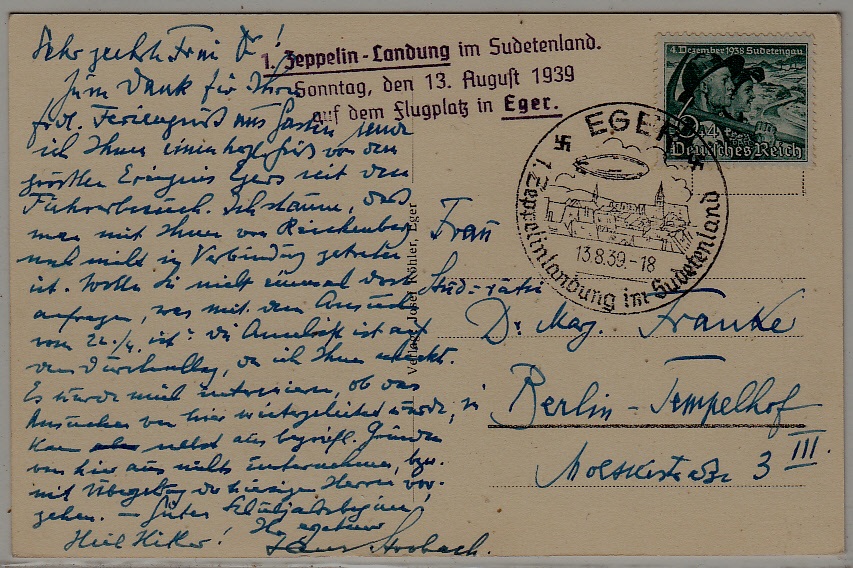 Sehr geehrte Frau Dr!
Zum Dank für Ihren
frdl. Feriengruß aus Gastein sende
ich Ihnen einen herzl. Gruß von dem
größten Ereignis Egers seit dem
Führerbesuch. Ich staune, daß
man mit Ihnen von Reichenberg
noch nicht in Verbindung getreten
ist. Wollen Sie nicht einmal dort
anfragen, was mit dem Ansuchen
vom 22./4. ist? die Anschrift ist auf
dem Durchschlag, den ich Ihnen
Es würde mich interessieren, ob das
Ansuchen von hier weitergeleitet wurde,
Kann selbst aus begreifl. Gründen
von hier aus nichts unternehmen, bzw.
mit Übergehung der hiesigen Herren vor-
gehen. – Guten Schuljahrsbeginn!
Heil Hitler! Ihr ergebener
1. Zeppelin-Landung im Sudetenland.
Sonntag, den 13. August 1939
auf dem Flugplatz in Eger.
4. Dezember 1938 Sudetengau
Deutsches Reich
EGER
13.8.39.-18
1. Zeppelinlandung im Sudetenland
Verlag: Josef Köhler, Eger
Frau
Studienrätin
Dr. Marg. Franke
in
Berlin-Tempelhof
3 III.